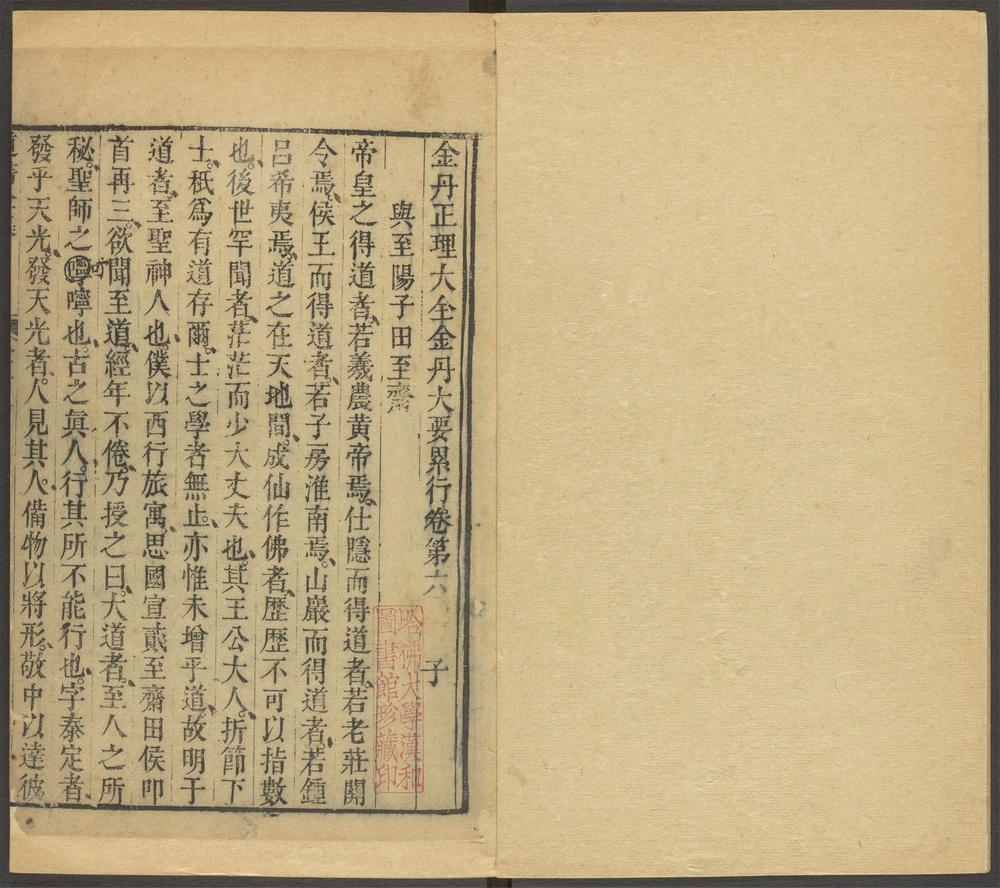 金丹正理大全金丹大要累行卷第六　子
與至陽子田至齋
帝皇之得道者若羲農黃帝焉仕隱而得道者若老莊關
令焉侯王而得道者若子房淮南焉山巖而得道者若鍾
呂希夷焉道之在天地間成仙作佛者歷歷不可以指數
也後世罕聞者茫茫而少大丈夫也其王公大人折節下
士秪爲有道存爾士之學者無止亦惟未增乎道故明于
道者至聖神人也僕以西行旅寓思國宣貳至齋田侯叩
首再三欲聞至道經年不倦乃授之曰大道者至人之所
秘聖師之叮嚀也古之眞人行其所不能行也字泰定者
發乎天光發天光者人見其人備物以將形敬中以達彼
哈佛大學漢和
圖書館珍藏印